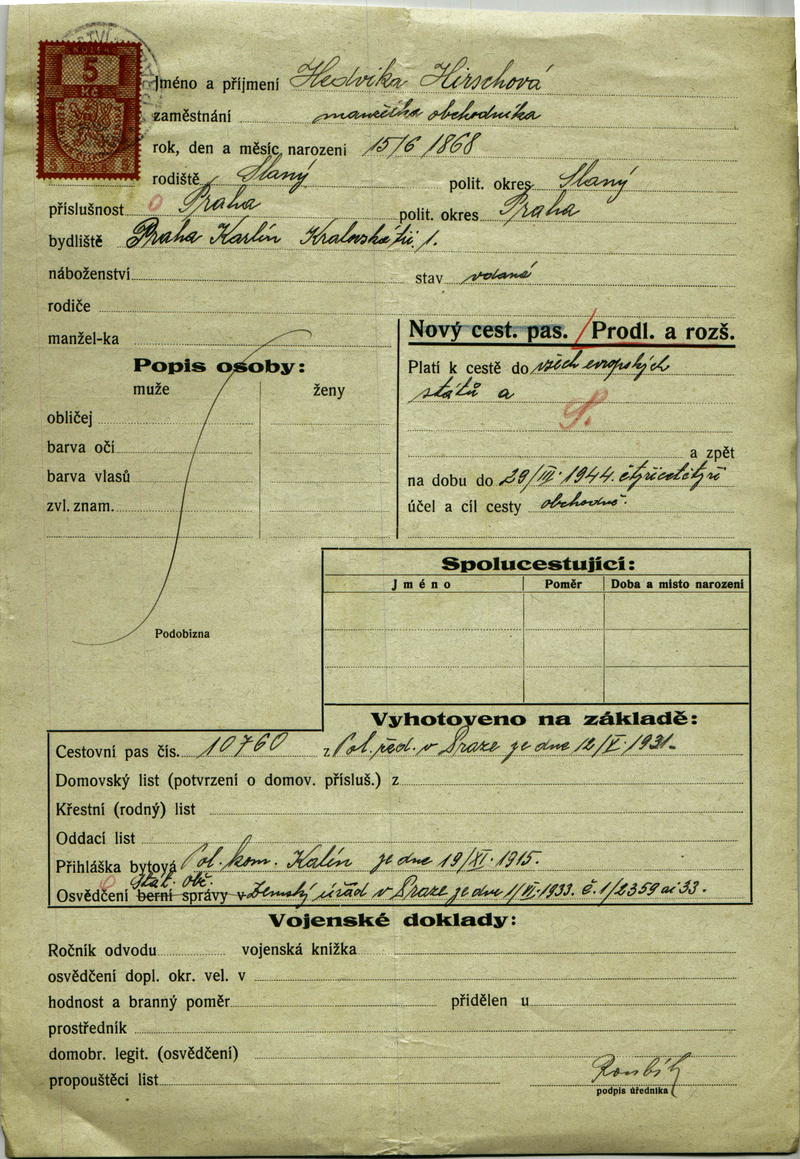 KOLEK
5
Kč
Jméno a příjmení Hedvika Hirschová
zaměstnání manželka obchodníka
rok, den a měsíc narození 15/6 1868
rodiště Slaný polit. okres Slaný
příslušnost Praha polit. okres Praha
bydliště Praha Karlín Kralovská tř. 1.
náboženství stav vdaná
rodiče
manžel-ka
Nový cest. pas. / Prodl. a rozš.
Popis osoby:
muže ženy
obličej
barva očí
barva vlasů
zvl. znam.
Platí k cestě do všech evropských
států a
S.
a zpět
na dobu do 29/III. 1944. čtyřicetčtyři
účel a cíl cesty obchodně.
Podobizna
Spolucestující:
Jméno Poměr Doba a místo narození
Vyhotoveno na základě:
Cestovní pas čís. 10760 z Pol. řed. v Praze ze dne 12/V. 1931.
Domovský list (potvrzení o domov. přísluš.) z
Křestní (rodný) list
Oddací list
Přihláška bytová Pol. kom. Kalín ze dne 19/XI. 1915.
stát. obč.
Osvědčení berní správy v Zemský úřad v Praze ze dne 1/VI. 1933. č. 1/2359 ai 33.
Vojenské doklady:
Ročník odvodu vojenská knížka
osvědčení dopl. okr. vel. v
hodnost a branný poměr přidělen u
prostředník
domobr. legit. (osvědčení)
propouštěcí list
podpis úředníka